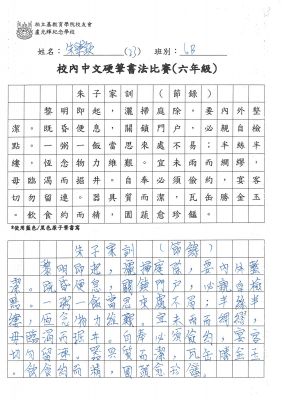 柏立基教育學院校友會
盧光輝紀念學校
姓名： (23) 班別：6B
校內中文硬筆書法比賽(六年級)
朱子家訓（節錄）
黎明即起，灑掃庭除，要內外整
潔。既昏便息，關鎖門戶，必親自檢
點。一粥一飯當思來處不易；半絲半
縷，恆念物力維艱。宜未雨而綢繆，
毋臨渴而掘井。自奉必須儉約，宴客
切勿留連。器具質而潔，瓦缶勝金玉
。飲食約而精，園蔬愈珍饈。
*使用藍色/黑色原子筆書寫
朱子家訓（節錄）
黎明即起，灑掃庭除，要內外整
潔。既昏便息，關鎖門戶，必親自檢
點。一粥一飯當思來處不易；半絲半
縷，恆念物力維艱。宜未雨而綢繆，
毋臨渴而掘井。自奉必須儉約，宴客
切勿留連。器具質而潔，瓦缶勝金玉
。飲食約而精，園蔬愈珍饈。